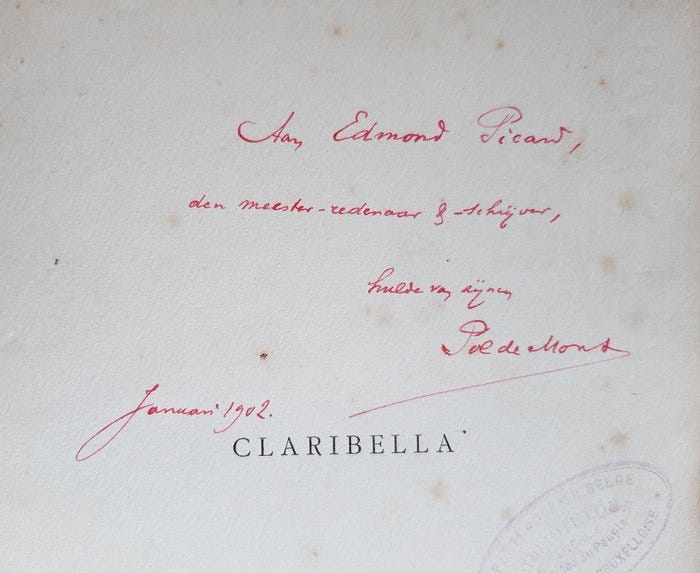 Aan Edmond Picard,
den meester-redenaar & -schrijver,
hulde van zijnen
Pol de Mont
Januari 1902.
CLARIBELLA
BELGE
du Peuple
BRUXELLOISE